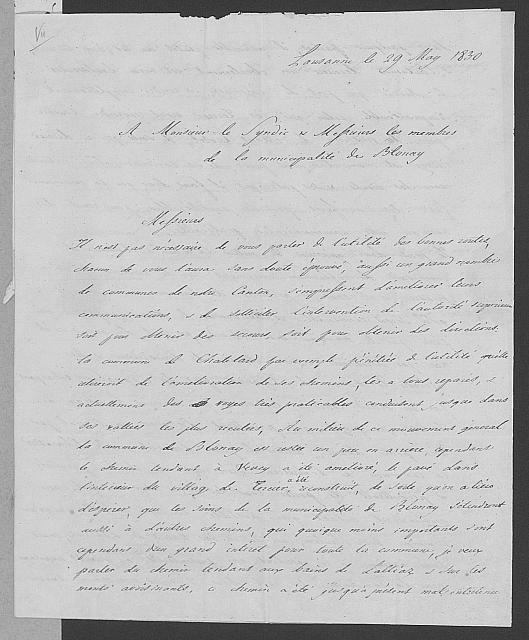 VII
Lausanne le 29 May 1830
A Monsieur le Syndic & Messieurs les membres
de la municipalité de Blonay
Messieurs
Il n'est pas nécessaire de vous parler de l'utilité des bonnes routes,
chacun de vous l'aura sans doute éprouvé, aussi un grand nombre
de communes de notre Canton, s'empressent d'améliorer leurs
communications, & de solliciter l'intervention de l'autorité supérieure
soit pour obtenir des secours, soit pour obtenir des directions.
la commune de Chatelard par exemple pénétrée de l'utilité qu'elle
obtenoit de l'amélioration de ses chemins, les a tous reparés, &
actuellement des voyes très praticables conduisent jusques dans
ses vallées les plus reculées, Au milieu de ce mouvement général
la commune de Blonay est restée un peu en arrière, cependant
le chemin tendant à Vevey a été amélioré, le pavé dans
l'interieur du village de Tercier, a été reconstruit, de sorte qu'on a lieu
d'esperer, que les soins de la municipalité de Blonay s'étendront
aussi à d'autres chemins, qui quoique moins importants sont
cependant d'un grand interet pour toute la commune, je veux
parler du chemin tendant aux bains de Lalliaz & sur les
monts avoisinants, ce chemin a été jusqu'à présent mal entretenu